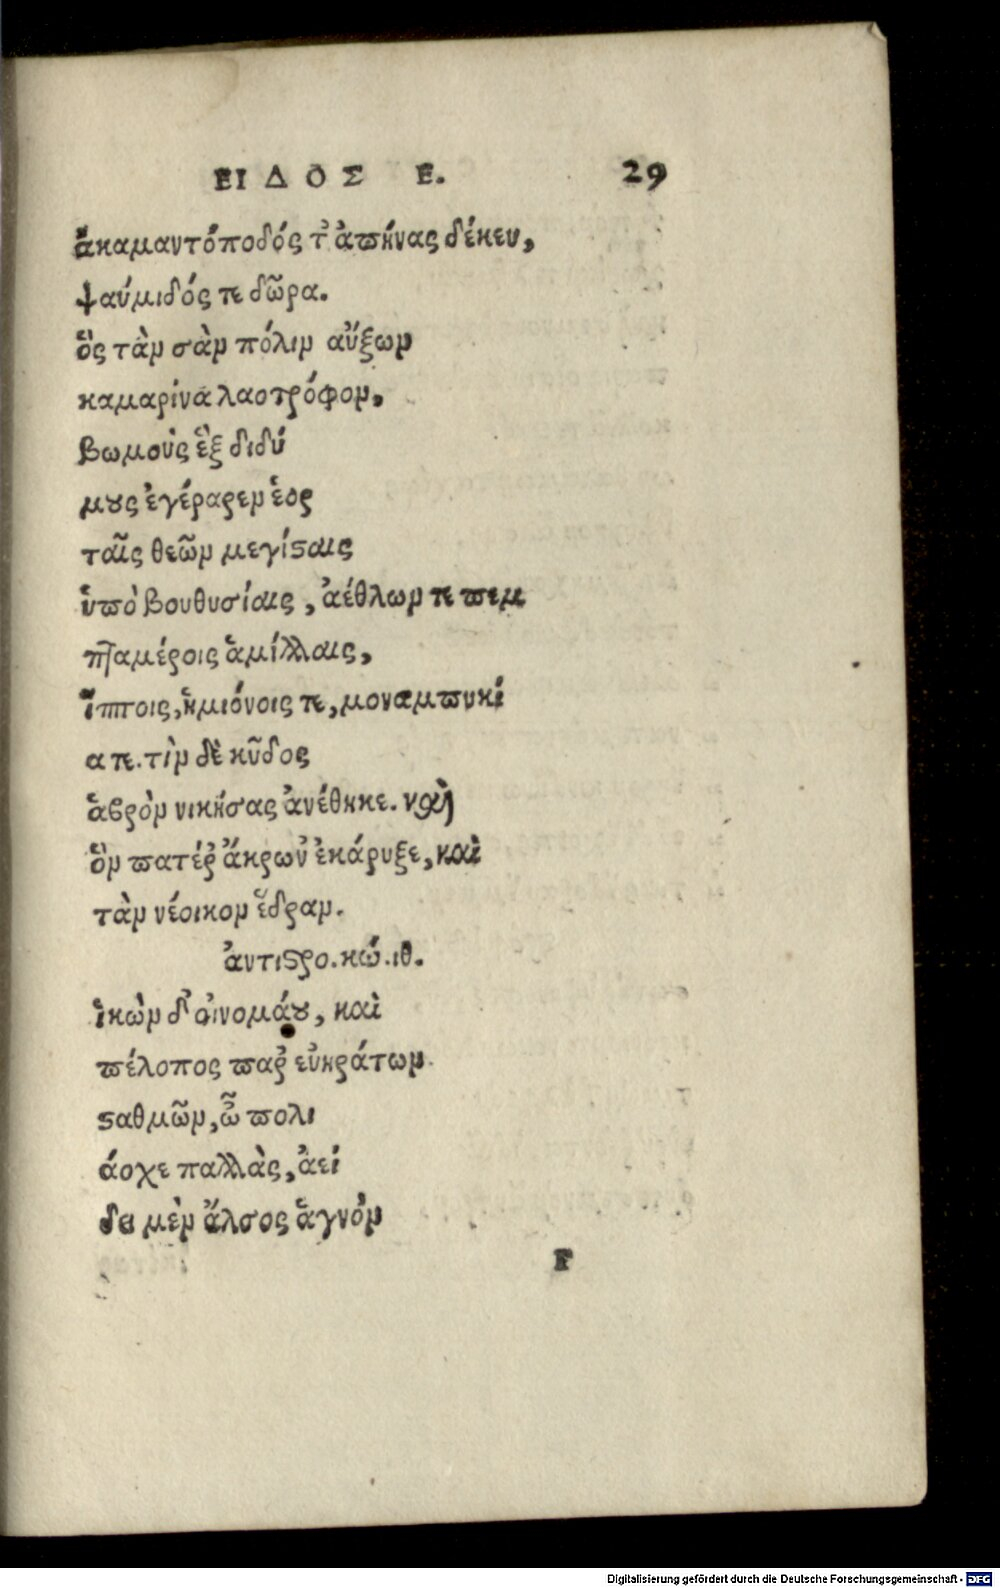 ΕΙΔΟΣ Ε. 29
ἀκαμαντόποδός τ᾽ ἀπήνας δέκευ,
ψαύμιδός τε δῶρα.
ὃς τὰν σὰν πόλιν αὔξων
καμαρίνα λαοτρόφον,
βωμοὺς ἓξ διδύ
μους ἐγέραρεν ἑορ
ταῖς θεῶν μεγίσταις
ὑπὸ βουθυσίαις, ἀέθλων τε πεμ
πταμέροις ἁμίλλαις,
ἵπποις, ἡμιόνοις τε, μοναμπυκί
α τε. τὶν δὲ κῦδος
ἁβρὸν νικήσας ἀνέθηκε. καὶ
ὃν πατέρ᾽ ἄκρων᾽ ἐκάρυξε, καὶ
τὰν νέοικον ἕδραν.
ἀντιστρο. κώ. ιθ.
ἱκὼν δ᾽ οἰνομάου, καὶ
πέλοπος παρ᾽ εὐηράτων
σταθμῶν, ὦ πολι
άοχε παλλὰς, ἀεί
δει μὲν ἄλσος ἁγνὸν
F
Digitalisierung gefördert durch die Deutsche Forschungsgemeinschaft - DFG